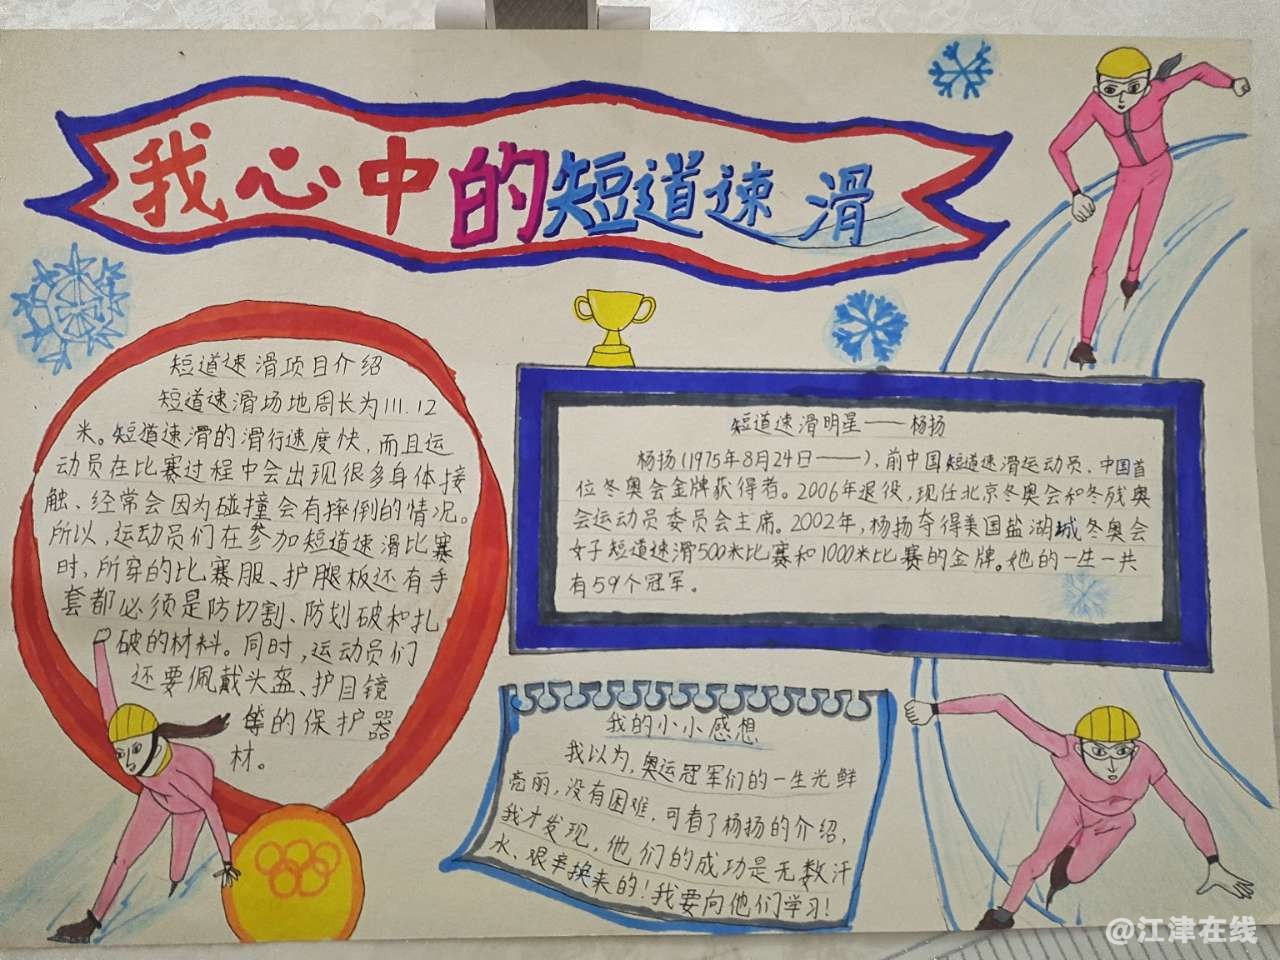 我心中的短道速滑
短道速滑项目介绍
短道速滑场地周长为111.12
米。短道速滑的滑行速度快,而且运
动员在比赛过程中会出现很多身体接
触、经常会因为碰撞会有摔倒的情况。
所以,运动员们在参加短道速滑比赛
时,所穿的比赛服、护腿板还有手
套都必须是防切割、防划破和扎
破的材料。同时,运动员们
还要佩戴头盔、护目镜
等的保护器
材。
短道速滑明星——杨扬
杨扬(1975年8月24日——),前中国短道速滑运动员、中国首
位冬奥会金牌获得者。2006年退役,现任北京冬奥会和冬残奥
会运动员委员会主席。2002年,杨扬夺得美国盐湖城冬奥会
女子短道速滑500米比赛和1000米比赛的金牌。她的一生一共
有59个冠军。
我的小小感想
我以为,奥运冠军们的一生光鲜
亮丽,没有困难,可看了杨扬的介绍,
我才发现,他们的成功是无数汗
水、艰辛换来的!我要向他们学习!
@江津在线